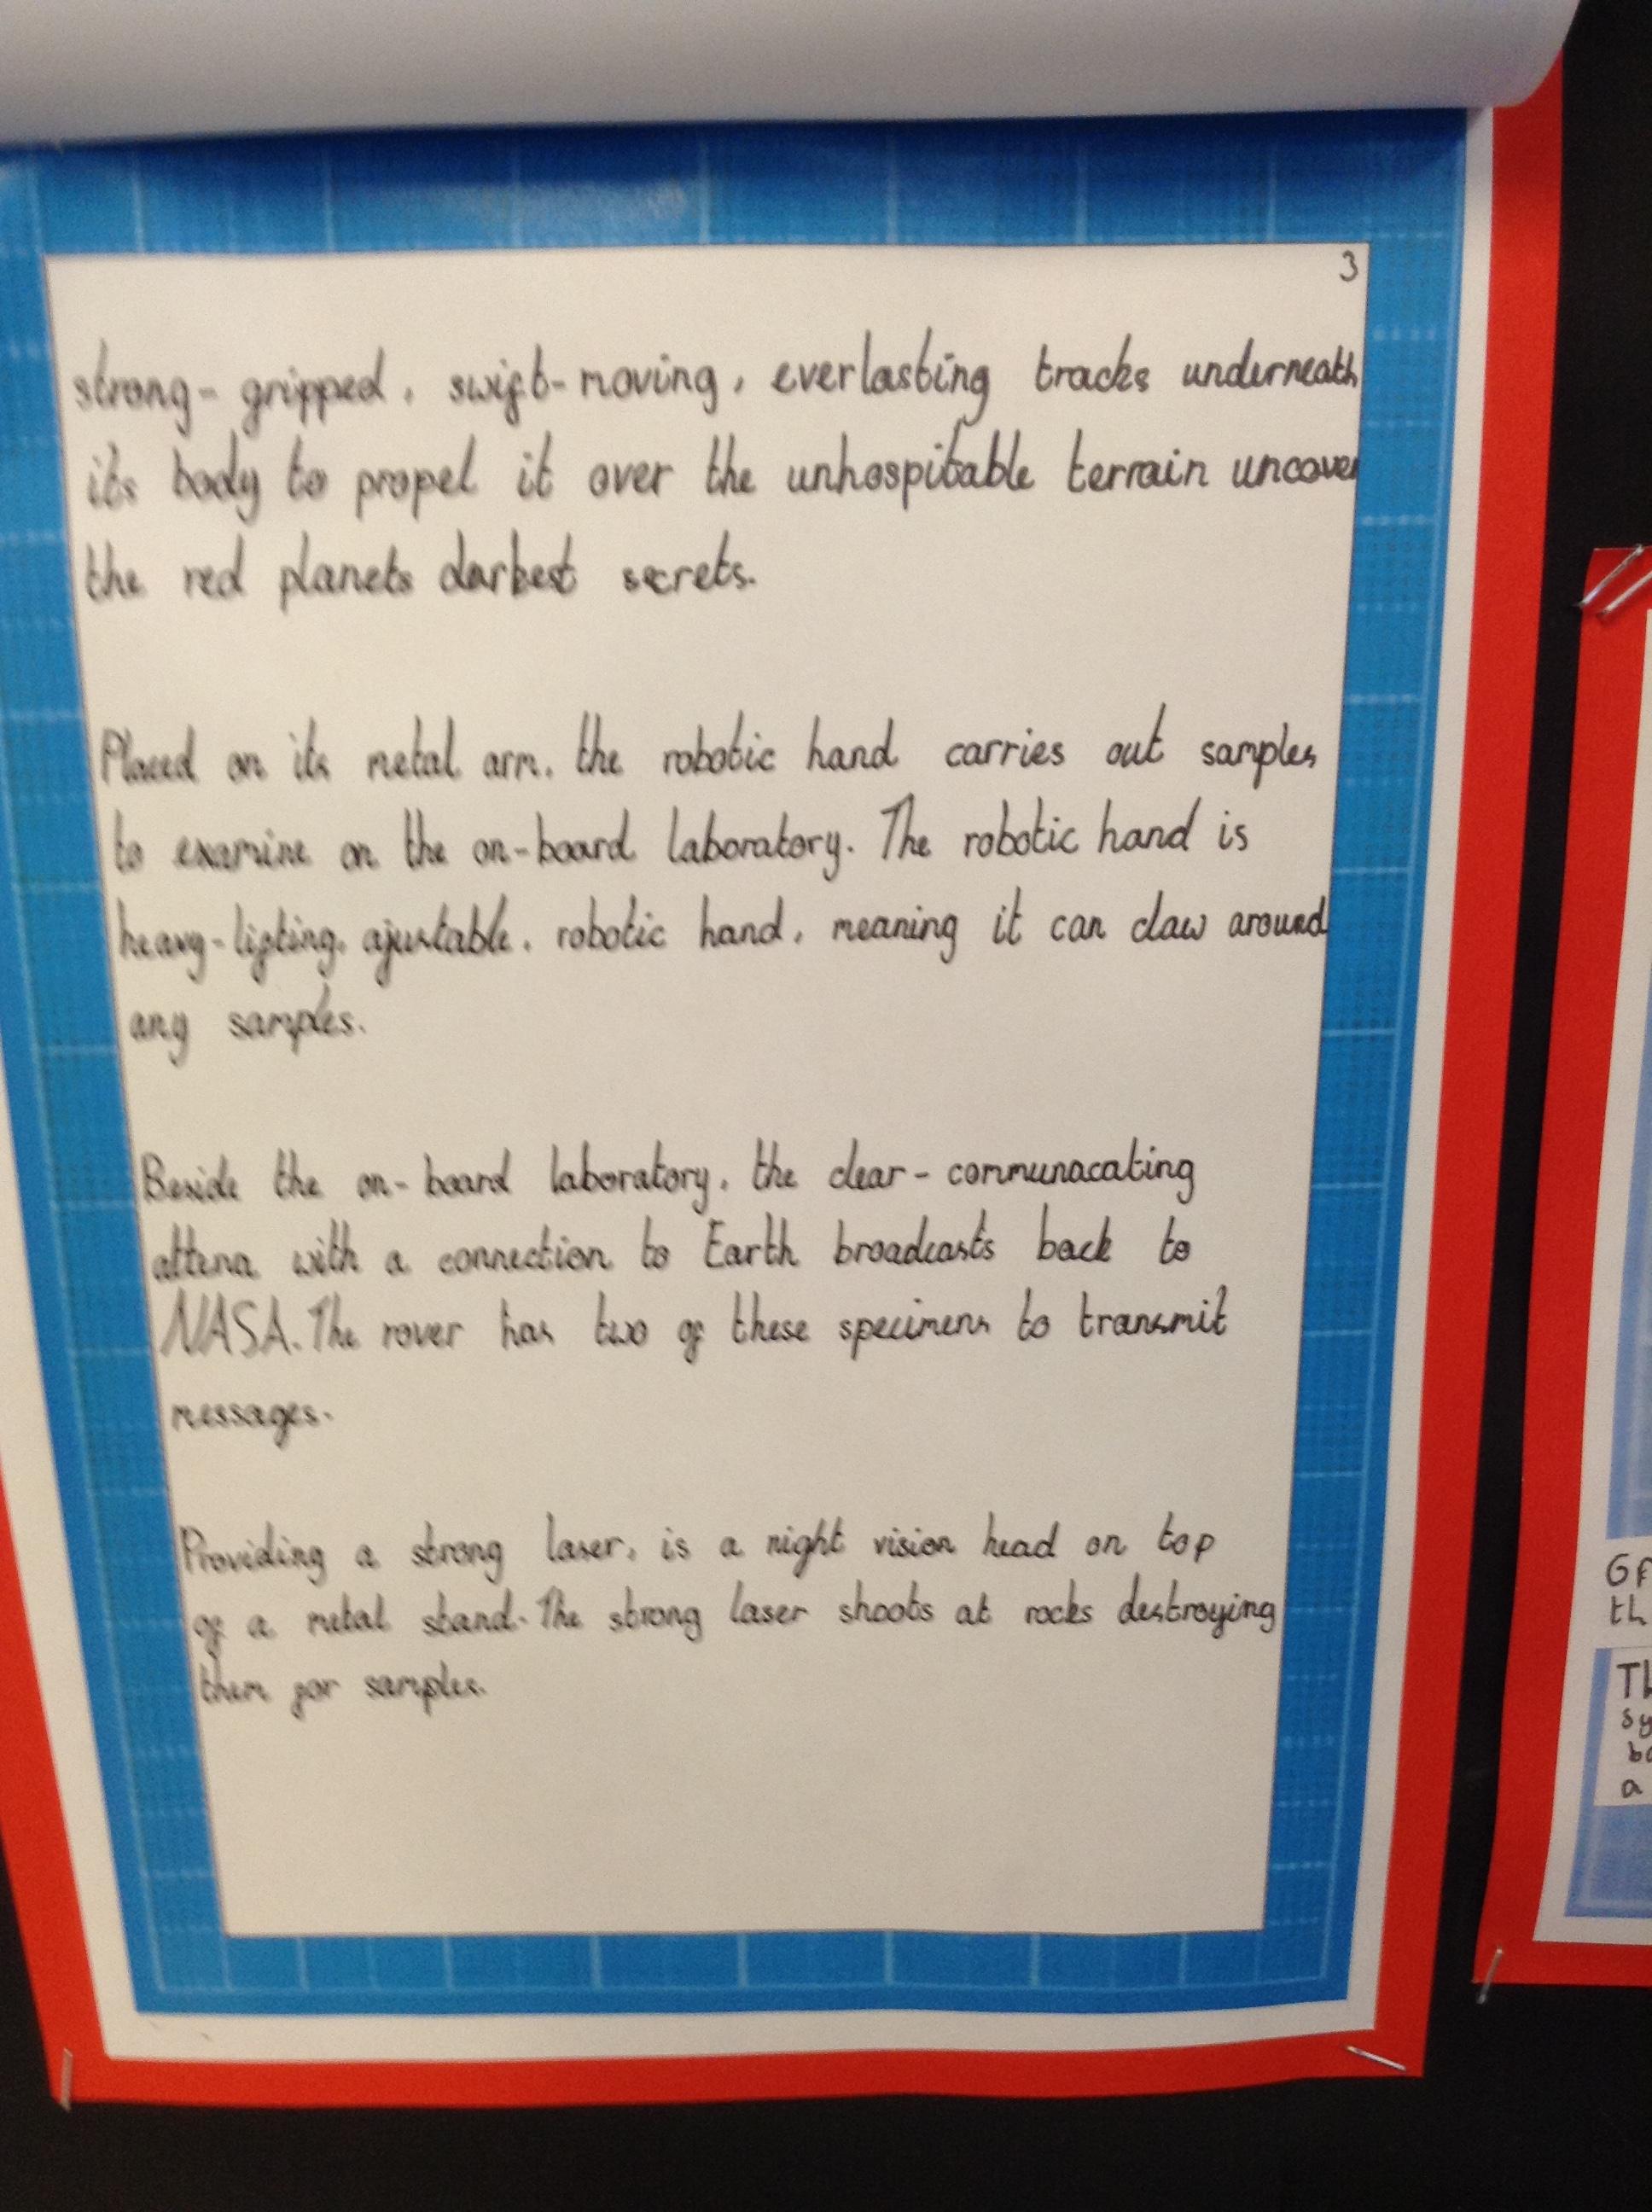 3
strong-gripped, swift-moving, everlasting tracks underneath
its body to propel it over the unhospitable terrain uncover
the red planets darkest secrets.
Placed on its metal arm, the robotic hand carries out samples
to examine on the on-board laboratory. The robotic hand is
heavy-lifting, ajustable, robotic hand, meaning it can claw around
any samples.
Beside the on-board laboratory, the clear-communacating
attena with a connection to Earth broadcasts back to
NASA. The rover has two of these specimens to transmit
messages.
Providing a strong laser, is a night vision head on top
of a metal stand. The strong laser shoots at rocks destroying
them for samples.
th
a